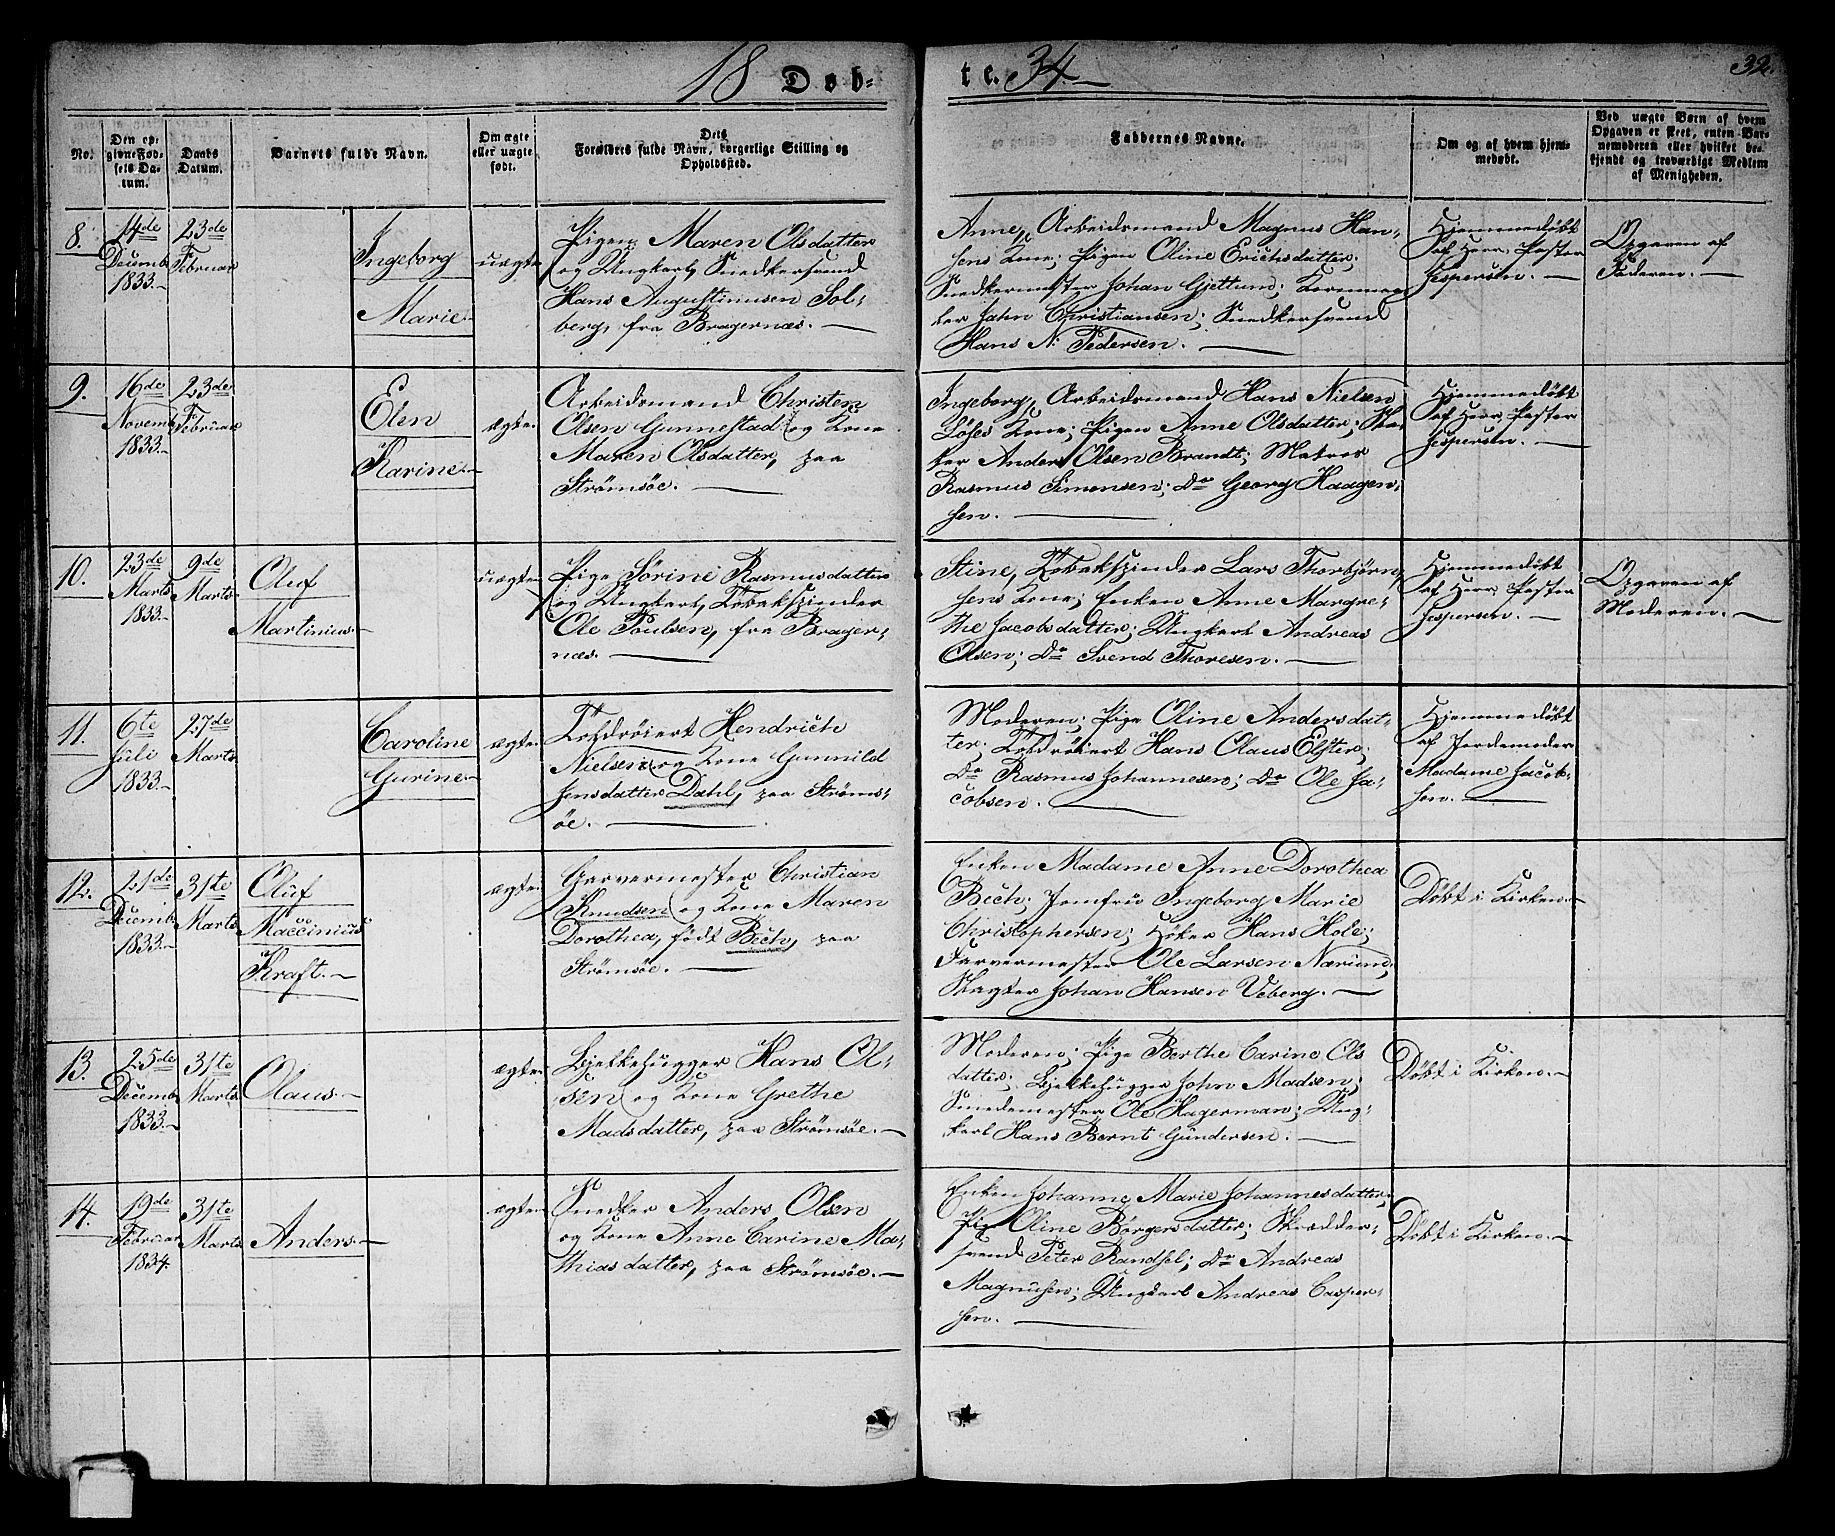 18 Døb-
te. 34.
32.
No.
Den op-
givne Fød-
sels Da-
tum.
Daabs
Datum.
Barnets fulde Navn.
Om ægte
eller uægte
født.
Dets
Forældres fulde Navn, borgerlige Stilling og
Opholdssted.
Faddernes Navne.
Om og af hvem hjem-
medøbt.
Ved uægte Børn af hvem
Opgaven er skeet, enten Bar-
nemoderen eller hvilket be-
kjendt og troværdigt Medlem
af Menigheden.
8.
14de
Decemb.
1833.
23de
Februar
Ingeborg
Marie
uægte
Pigen Maren Olsdatter
og Ungkarl, Snedkersvend
Hans Augustinusen Sol-
berg, fra Bragernæs.
Anne, Arbeidsmand Magnus Han-
sens Kone; Pigen Oline Erichsdatter;
Snedkermester Johan Gjetlund; Kornmaa-
ler Jahn Christiansen; Snedkersvend
Hans N: Pedersen.
Hjemmedøbt
af Herr Pastor
Jespersen.
Opgaven af
Faderen.
9.
16de
Novemb.
1833.
23de
Februar
Elen
Karine
ægte
Arbeidsmand Christen
Olsen Gunnestad og Kone
Maren Olsdatter, paa
Strømsøe.
Ingeborg, Arbeidsmand Hans Nielsen
Løses Kone; Pigen Anne Olsdatter;
Anders Olsen Brandt; Matros
Rasmus Simonsen; Do Georg Haagen-
sen.
Hjemmedøbt
af Herr Pastor
Jespersen.
10.
23de
Marts
1833.
9de
Marts
Oluf
Martinius
uægte
Pige Sørine Rasmusdatter
og Ungkarl, Tobakspinder
Ole Poulsen, fra Brager-
næs.
Stine, Tobakspinder Lars Thorbjørn-
sens Kone; Enken Anne Margre-
the Jacobsdatter; Ungkarl Andreas
Olsen; Do Svend Thoresen.
Hjemmedøbt
af Herr Pastor
Jespersen.
Opgaven af
Moderen.
11.
6te
Juli
1833
27de
Marts
Caroline
Gurine
ægte
Toldrøiert Hendrich
Nielsen og Kone Gunnild
Jensdatter Dahl, paa Strøms-
øe.
Moderen; Pige Oline Andersdat-
ter; Toldrøiert Hans Olaus Elster;
Do Rasmus Johannesen; Do Ole Ja-
cobsen.
Hjemmedøbt
af Jordemoder
Madame Jacob-
sen.
12.
21de
Decemb.
1833
31te
Marts
Oluf
Maccinius
Kraft.
ægte
Garvermester Christian
Knudsen og Kone Maren
Dorothea, født Bech, paa
Strømsøe.
Enken Madame Anne Dorothea
Bech; Jomfru Ingeborg Marie
Christophersen; Høker Hans Hole;
Farvermester Ole Larsen Nærund;
Slagter Johan Hansen Veberg.
Døbt i Kirken.
13.
25de
Decemb.
1833.
31te
Marts
Olaus.
ægte
Bjelkehugger Hans Ol-
sen og Kone Grethe
Madsdatter, paa Strømsøe.
Moderen; Pige Berthe Carine Ols
datter; Bjelkehugger John Madsen;
Smedemester Ole Hagerman; Ung-
karl Hans Bernt Gundersen.
Døbt i Kirken.
14.
19de
Februar
1834.
31te
Marts
Anders
ægte
Snedker Anders Olsen
og Kone Anne Carine Ma-
thiasdatter, paa Strømsøe.
Enken Johanne Marie Johannesdatter;
Pig Oline Børgersdatter; Skrædder-
svend Peter Randsel; Do Andreas
Magnusen; Ungkarl Andreas Casper-
sen.
Døbt i Kirken.